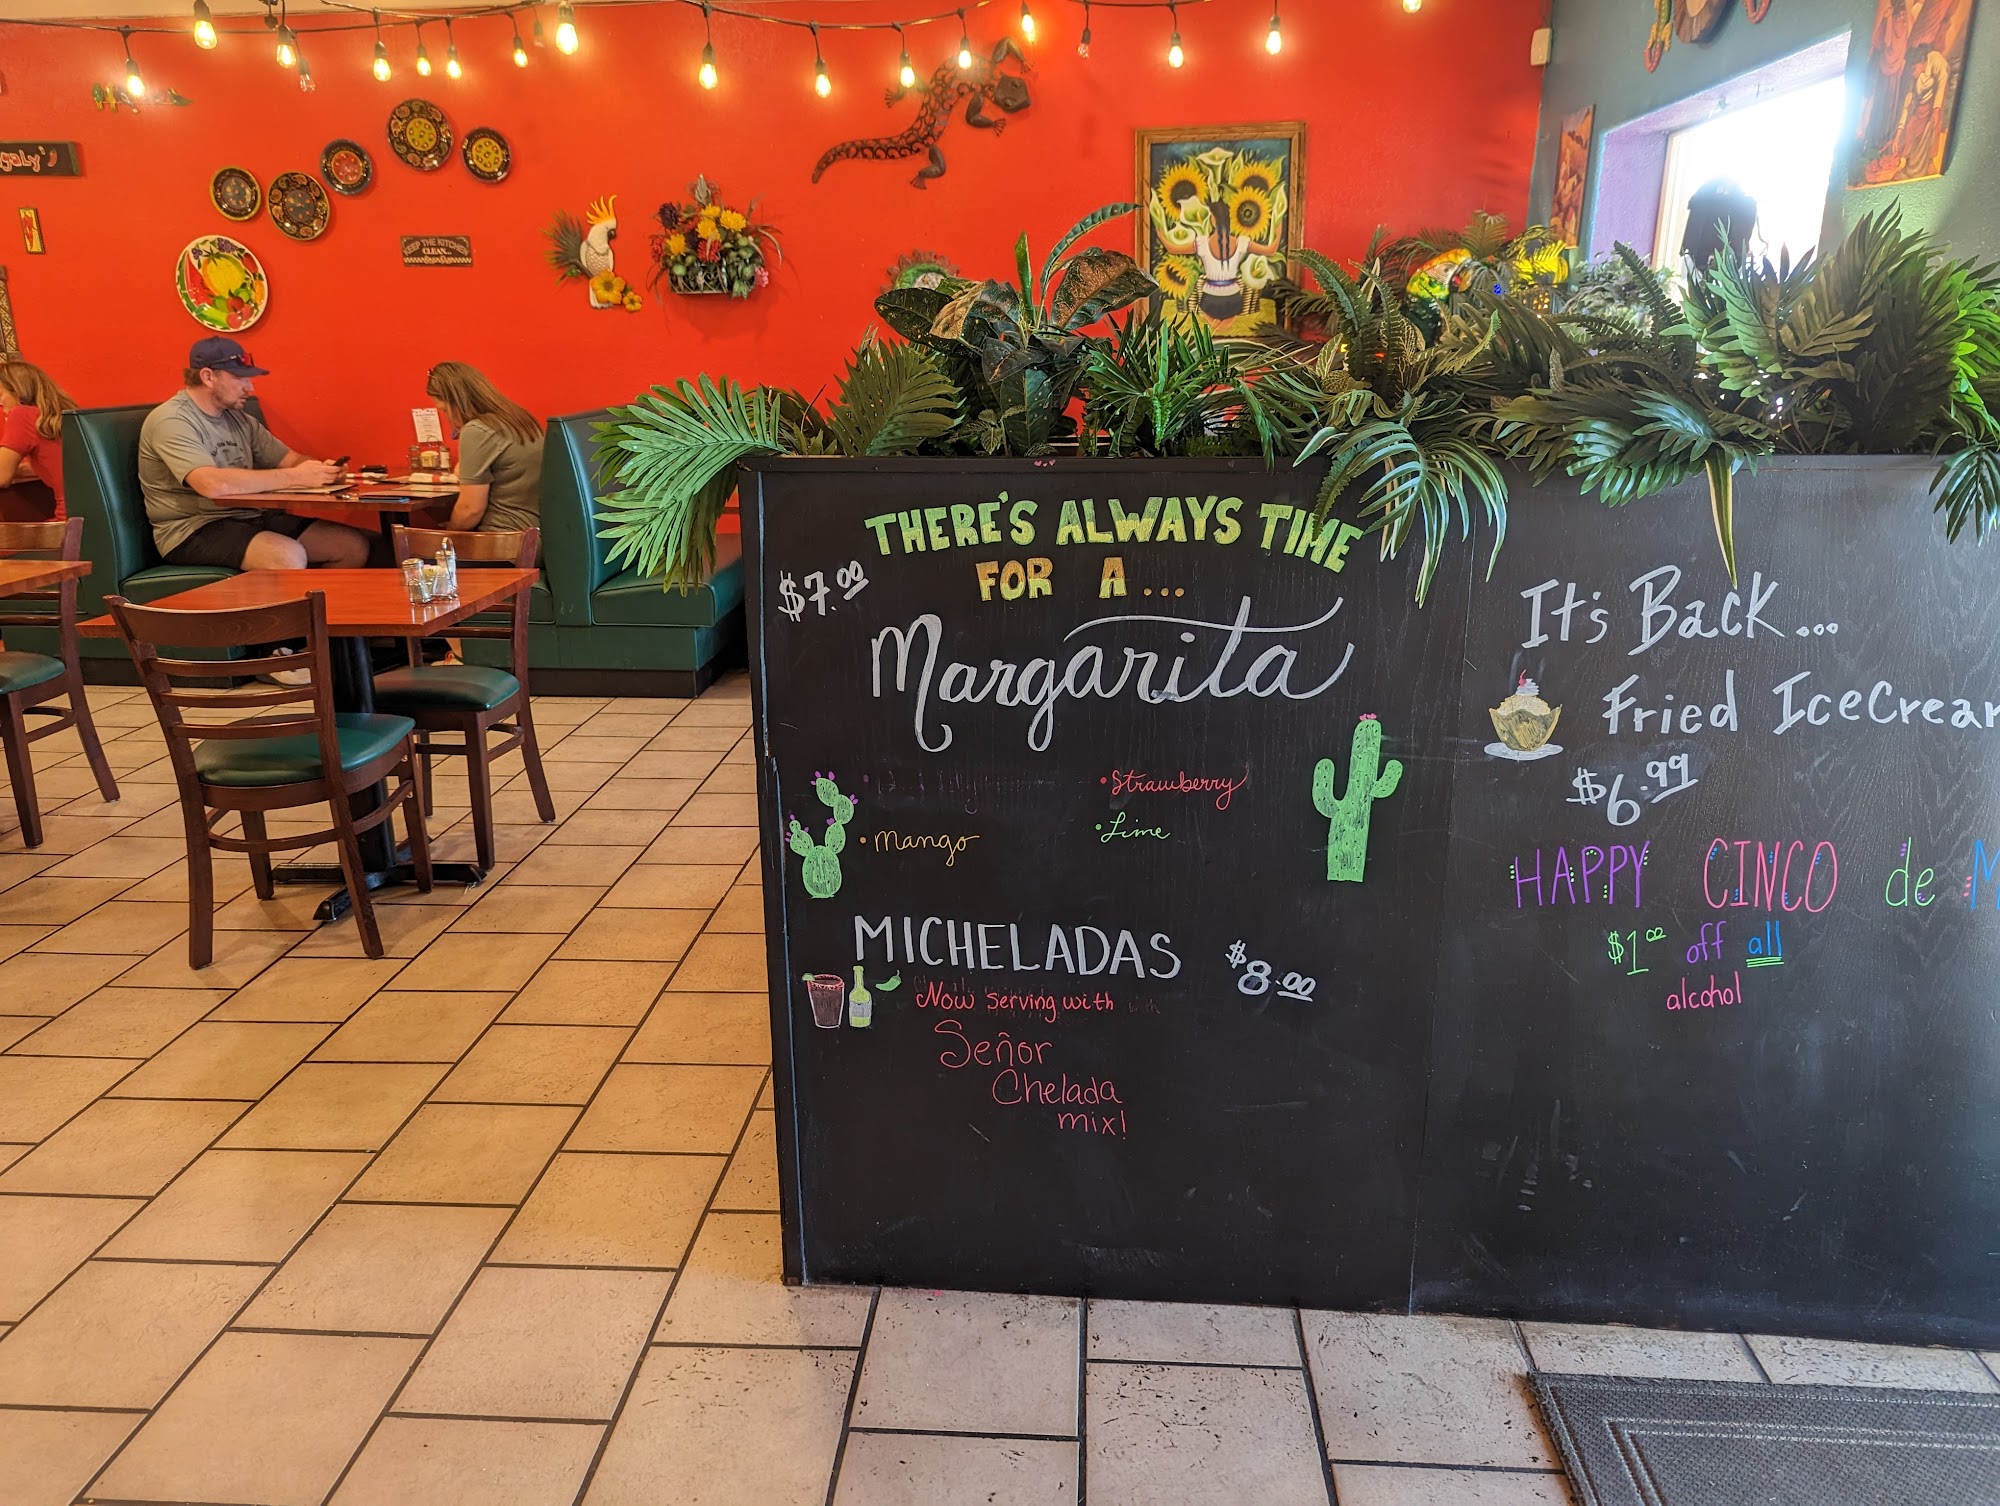 KEEP THE KITCHEN
CLEAN...
THERE'S ALWAYS TIME
FOR A ...
$7.00
Margarita
• Strawberry
• Mango
• Lime
MICHELADAS $8.00
Now serving with
Señor
Chelada
mix!
It's Back...
Fried IceCrear
$6.99
HAPPY CINCO de M
$1.00 off all
alcohol